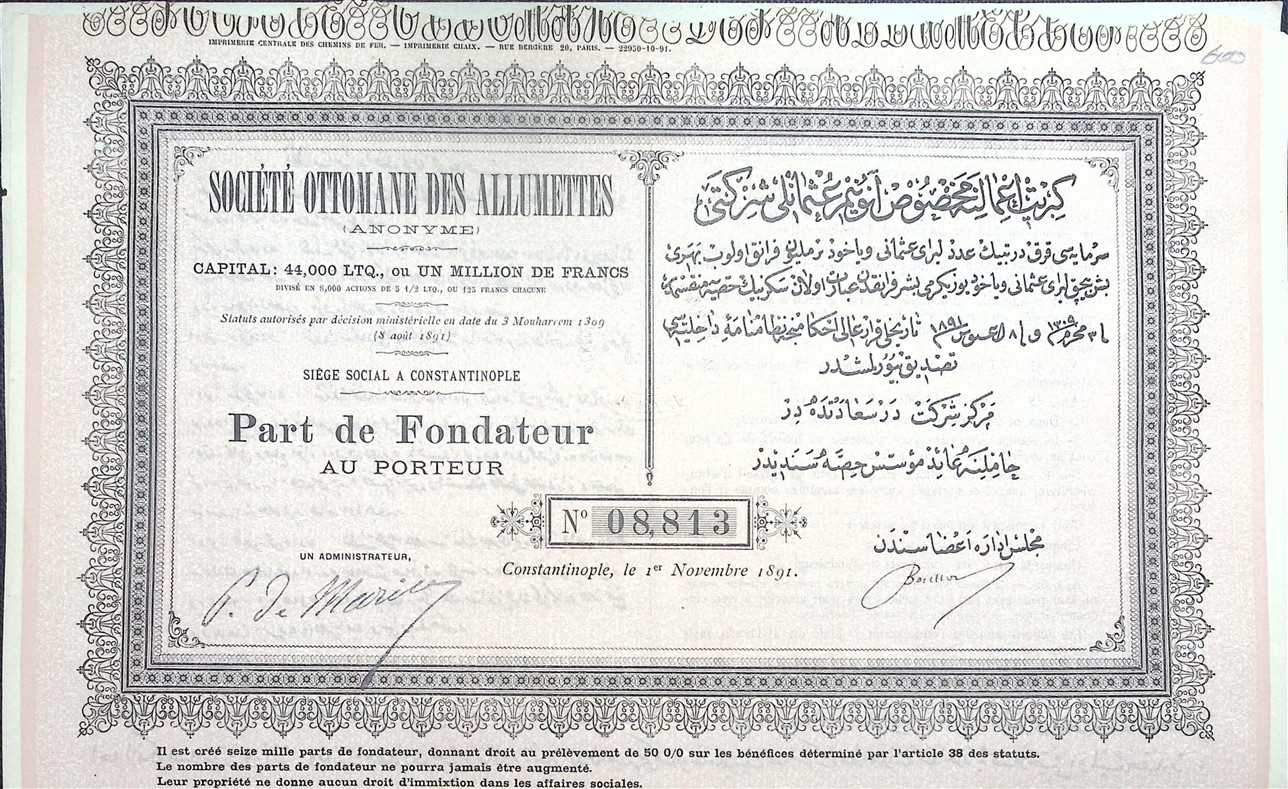 IMPRIMERIE CENTRALE DES CHEMINS DE FER. — IMPRIMERIE CHAIX. — RUE BERGÈRE 20, PARIS. — 22950-10-91.
SOCIÉTÉ OTTOMANE DES ALLUMETTES
(ANONYME)
CAPITAL: 44,000 LTQ., OU UN MILLION DE FRANCS
DIVISÉ EN 8,000 ACTIONS DE 5 1/2 LTQ., OU 125 FRANCS CHACUNE
Statuts autorisés par décision ministérielle en date du 3 Mouharrem 1309
(8 août 1891)
SIÈGE SOCIAL A CONSTANTINOPLE
Part de Fondateur
AU PORTEUR
كبريت اعمالنه مخصوص آنونيم عثمانلى شركتى
سرمايه سى قرق درت بيك عدد ليراى عثمانى وياخود بر مليون فرانق اولوب بهرى
بش بچق ليراى عثمانى وياخود يوز يكرمى بشر فرانقدن عبارت اولان سكز بيك حصه يه منقسمدر
تصديق بيورلمشدر
مركز شركت درسعادتده در
حاملنه عائد مؤسس حصه سنديدر
Nº 08,813
UN ADMINISTRATEUR,
مجلس اداره اعضاسندن
Constantinople, le 1er Novembre 1891.
Il est créé seize mille parts de fondateur, donnant droit au prélèvement de 50 0/0 sur les bénéfices déterminé par l'article 38 des statuts.
Le nombre des parts de fondateur ne pourra jamais être augmenté.
Leur propriété ne donne aucun droit d'immixtion dans les affaires sociales.